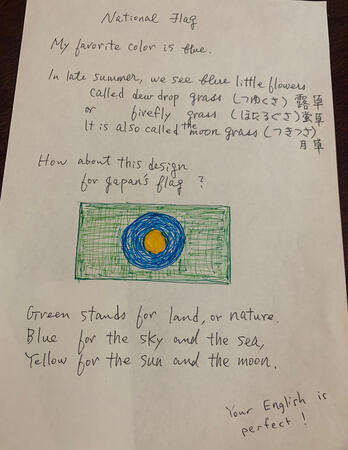 National Flag
My favorite color is blue.
In late summer, we see blue little flowers
called dew drop grass (つゆくさ) 露草
or firefly grass (ほたるぐさ) 蛍草
It is also called the moon grass (つきつさ)
月草
How about this design
for Japan's flag ?
Green stands for land, or nature.
Blue for the sky and the sea,
Yellow for the sun and the moon.
Your English is
perfect !